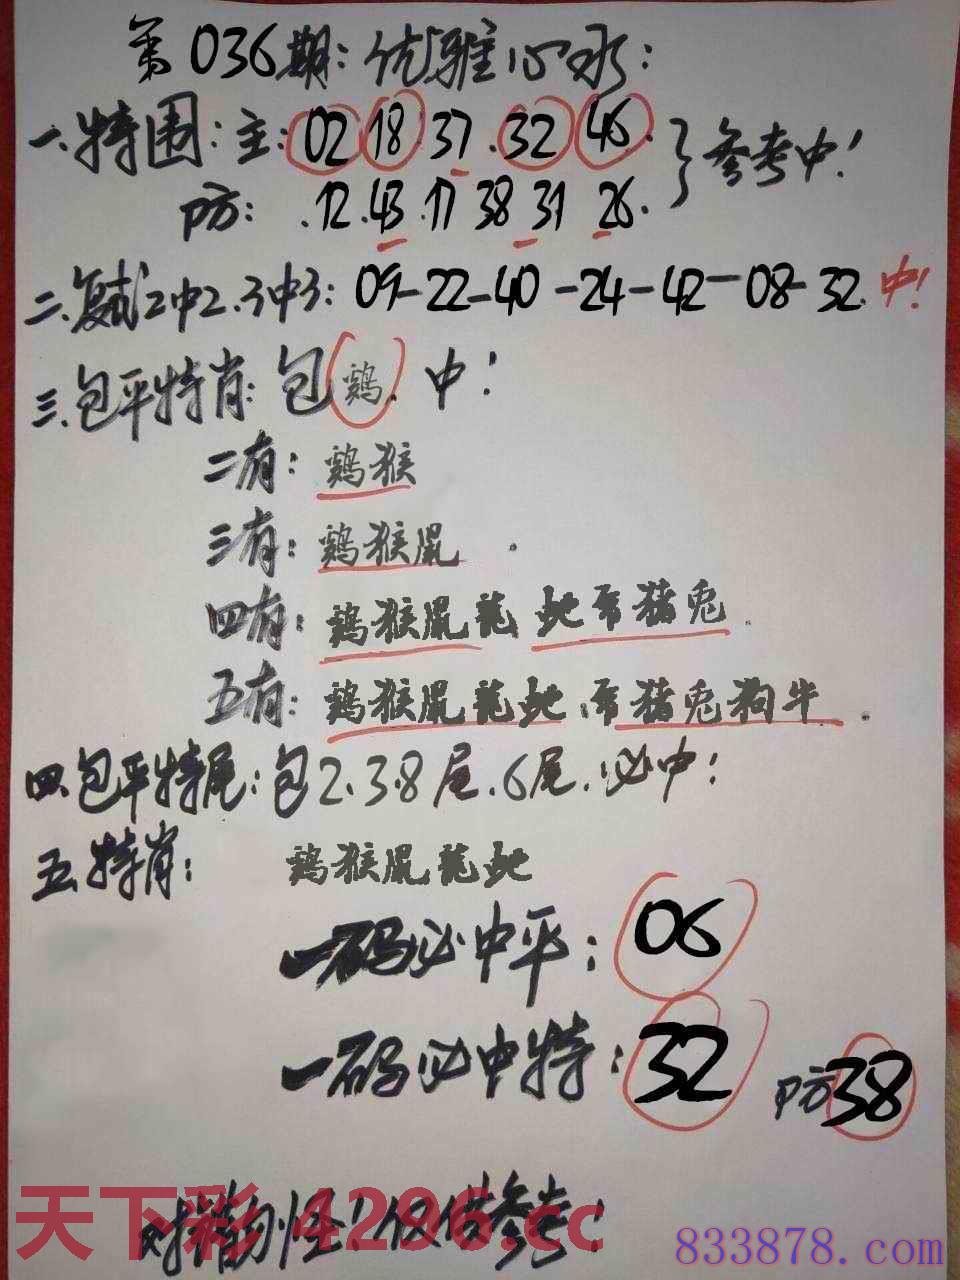 第036期：优雅心水：
一.特围：主：02 18 37.32 46.
防：.12.43.17 38 31 26.
参考中！
二.复式2中2.3中3：09-22-40-24-42-08-32.中！
三.包平特肖：包鷄.中！
二有：鷄猴
三有：鷄猴鼠.
四有：鷄猴鼠龍 蛇 猪兔.
五有：鷄猴鼠龍蛇. 猪兔狗牛.
四.包平特尾：包2.3.8尾.6尾.必中！
五.特肖：鷄猴鼠龍蛇
一码必中平：06
一码必中特：32 防38
料 怪！仅供参考！
天下彩 4296.cc
833878.com